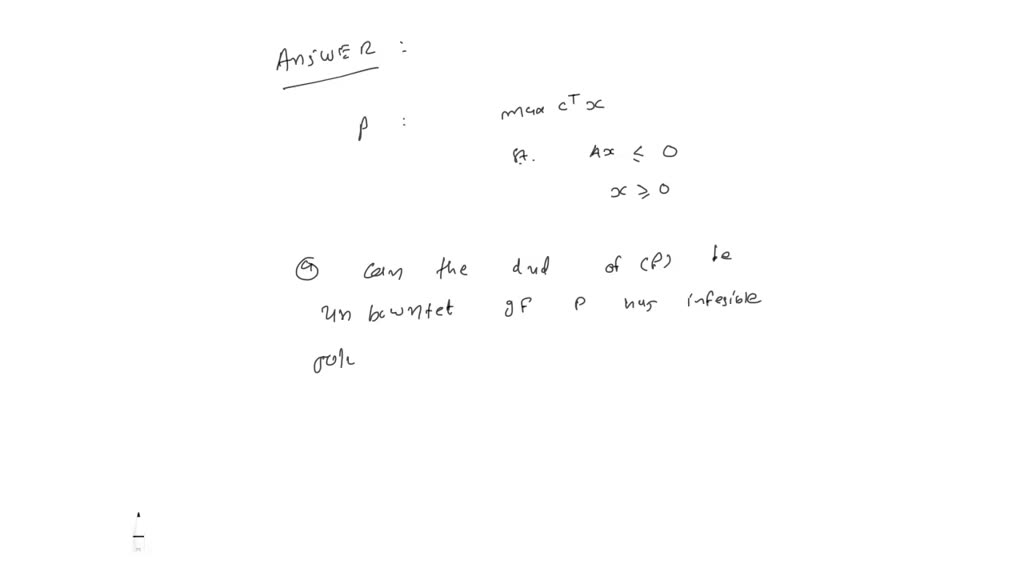 ANSWER :
P : max c^T x
st. Ax ≤ 0
x ≥ 0
ⓐ Can the dual of (P) be
un bounted if P has infesible